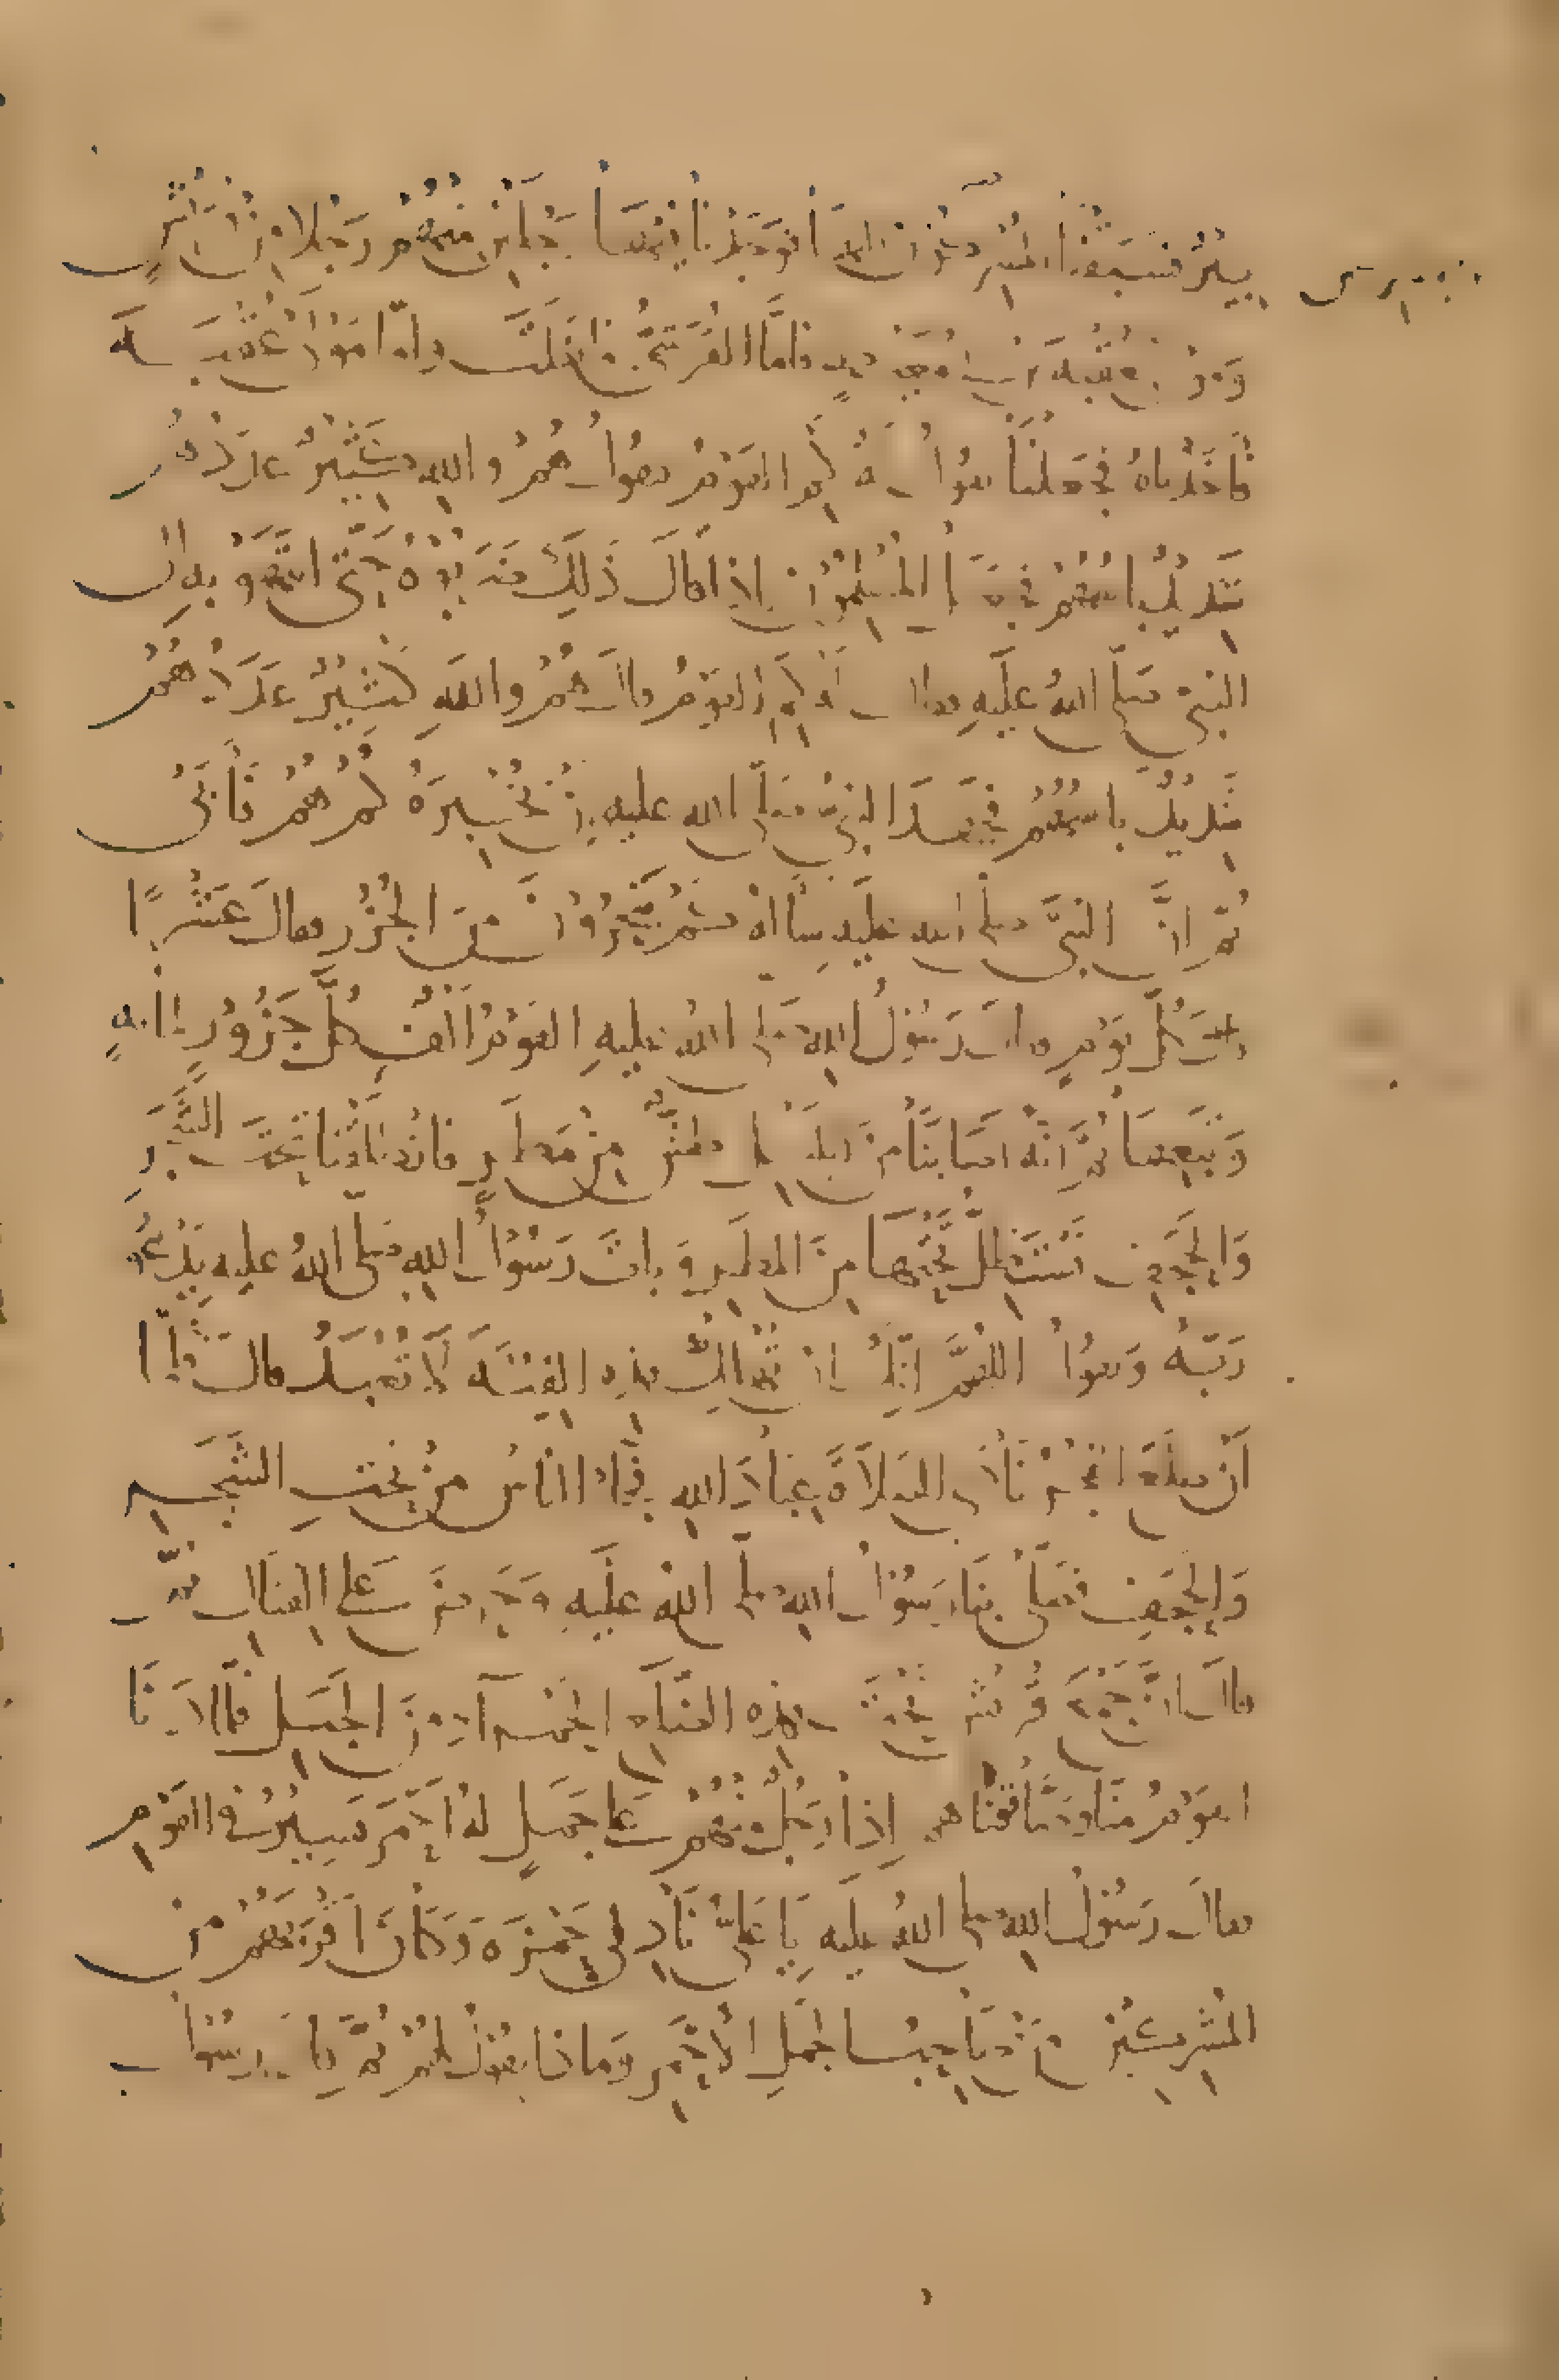 بِيْرٌ فسَبَقْنا المُشركون اليها فوَجَدْنا فيْهَا رَجُلَيْنِ مِنْهُمْ رَجُلا مِنْ قُرَيْشٍ
وَمَوْلًى لعُقْبَةَ بن ابي مُعَيْطٍ فامَّا القُرَشيُّ فانفَلَتَ وامّا مَوْلَى عُقْبَةَ
فَاخَذْناهُ فجَعَلْنَا نقوُلُ لهُ كم القَوْمُ فيقوُلُ هُمْ والله كَثِيْرٌ عدَدُهُمْ
شَدِيْدٌ باسُهُمْ فجعَلَ المُسْلِمُوْنَ إذا قالَ ذَلِكَ ضَرَبُوْهُ حَتّى انتَهَوْ بِهِ الى
النبيّ صَلى اللهُ عَليَهِ فقال له كمِ القَوْمُ قالَ هُمْ واللهِ كَثِيْرٌ عَدَدُهُمْ
شَدِيْدٌ باسُهُمْ فجَهَدَ النبيُّ صَلّى الله عليهِ أنْ يُخْبِرَهُ كَمْ هُمْ فَأَبَى
ثُمّ انَّ النبيَّ صلى الله عليَه سِأله كمْ يَنْحَرُوْنَ مِنَ الجُزُر فقالَ عَشْرًا
كلَّ يَوْمٍ قالَ رَسُوْلُ اللهِ صَلى اللهُ عليهِ القوْمُ الفٌ كلُّ جَزُوْرٍ لمائةٍ
وَتَبَعِهَا ثمَّ انّهُ اصَابَنَا مِنَ اللَيْلِ طشٌّ مِنْ مَطَرٍ فانْطَلقْنا تحْتَ الشّجَرِ
وَالحَجَفِ نَسْتَظِلُّ تحتَهَا مِنَ المَطَرِ وَباتَ رَسُوْلُ اللهِ صَلى اللهُ عليه يَدْعُو
رَبّهُ وَيقوُلُ اللهُمَّ انّكَ انْ تُهْلِكْ هذِهِ الفِئَةَ لَا تُعْبَدُ قالَ فلمّا
أنْ طلَعَ الفجْرُ نَادَى الصَلَاةَ عِبَادَ اللهِ فجَاءَ الناسُ مِنْ تحْتِ الشَّجَرِ
وَالحجَفِ فصَلّى بنَا رَسُوْلُ اللهِ صلى اللهُ عليَهِ وَحَرَّضَ عَلى القتَالِ ثمّ
قالَ انَّ جَمْعَ قُرَيْشٍ تَحْتَ هذِهِ الضِّلَعِ الحَمْرَآءِ مِنَ الجَبَلِ فلمّا دَنَا
القَوْمُ مِنّا وصَافَفْنَاهُم إذَا رَجُلٌ مِنْهُمْ عَلى جَمَلٍ لهُ احْمَرَ يَسِيْرُ في القَوْمِ
فقالَ رَسُوْلُ اللهِ صلى اللهُ عليه يَا عَليُّ نَادِ لي حَمْزَةَ وَكَانَ اقْرَبَهُمْ مِنَ
المُشْرِكِيْنَ مَنْ صَاحِبُ الجمَلِ الأحْمَرِ وَماذا يقوْلُ لهُمْ ثمّ قالَ رسُوْلُ